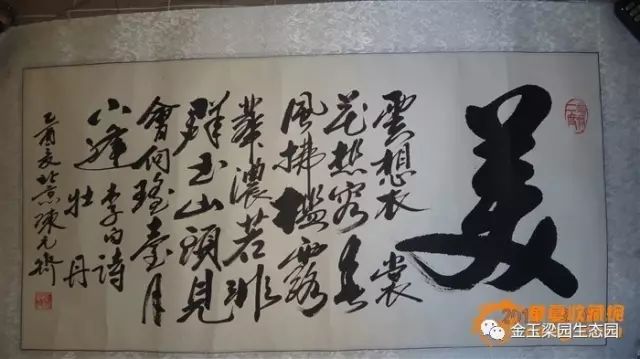 美
雲想衣裳
花想容春
風拂檻露
華濃若非
群玉山頭見
會向瑤臺月
下逢 李白詩
牡丹
乙酉夏
金玉梁园生态园